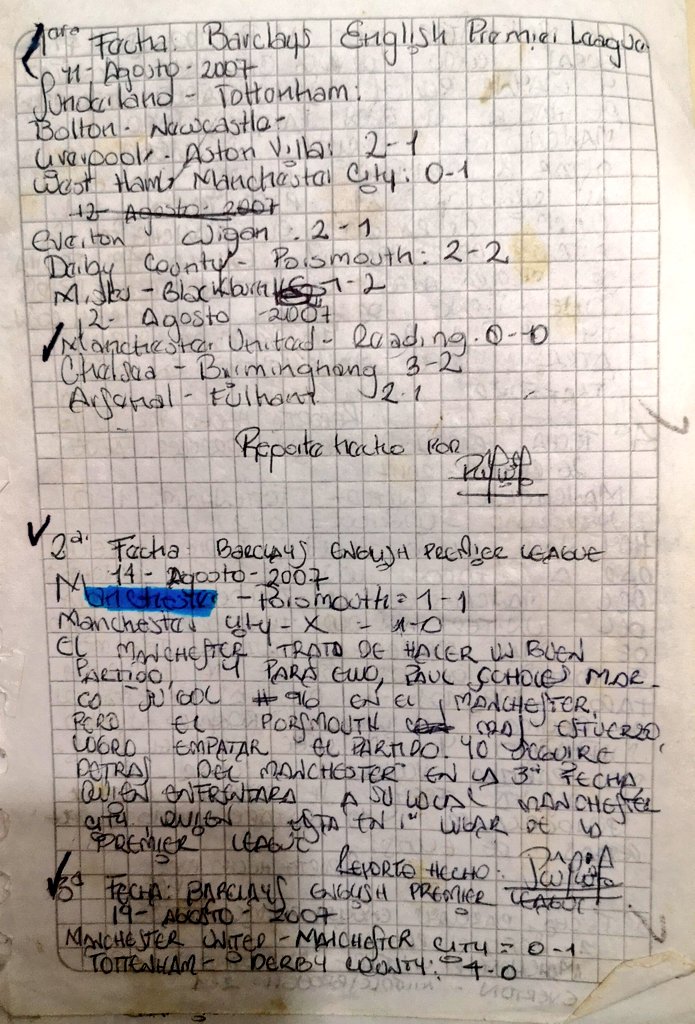 1era Fecha: Barclays English Premier League
11 - Agosto - 2007
Sunderland - Tottenham:
Bolton - Newcastle -
Liverpool - Aston Villa: 2-1
West Ham Manchester City: 0-1
12 Agosto 2007
Everton Wigan: 2-1
Derby County - Poismouth: 2-2
M - Blackburn 1-2
12 - Agosto - 2007
Manchester United - Reading 0-0
Chelsea - Birminghang 3-2
Arsenal - Fulham 2-1
Reporte hecho POR
2da Fecha: BARCLAYS ENGLISH PREMIER LEAGUE
14 - Agosto - 2007
Manchester - Poismouth = 1-1
Manchester City - X - 1-0
EL MANCHESTER TRATO DE HACER UN BUEN
PARTIDO, Y PARA ELLO, PAUL SCHOLES MAR-
CO SU GOL # 96 EN EL MANCHESTER,
PERO EL PORSMOUTH CON ESFUERZO
LOGRO EMPATAR EL PARTIDO. YO SEGUIRE
DETRAS DEL MANCHESTER EN LA 3ra FECHA,
QUIEN ENFRENTARA A SU LOCAL MANCHESTER
CITY. QUIEN ESTA EN 1er LUGAR DE LA
PREMIER LEAGUE
REPORTE HECHO:
3a FECHA: BARCLAYS ENGLISH PREMIER LEAGUE
19 - AGOSTO - 2007
MANCHESTER UNITED - MANCHESTER CITY = 0-1
TOTTENHAM - DERBY COUNTY: 4-0